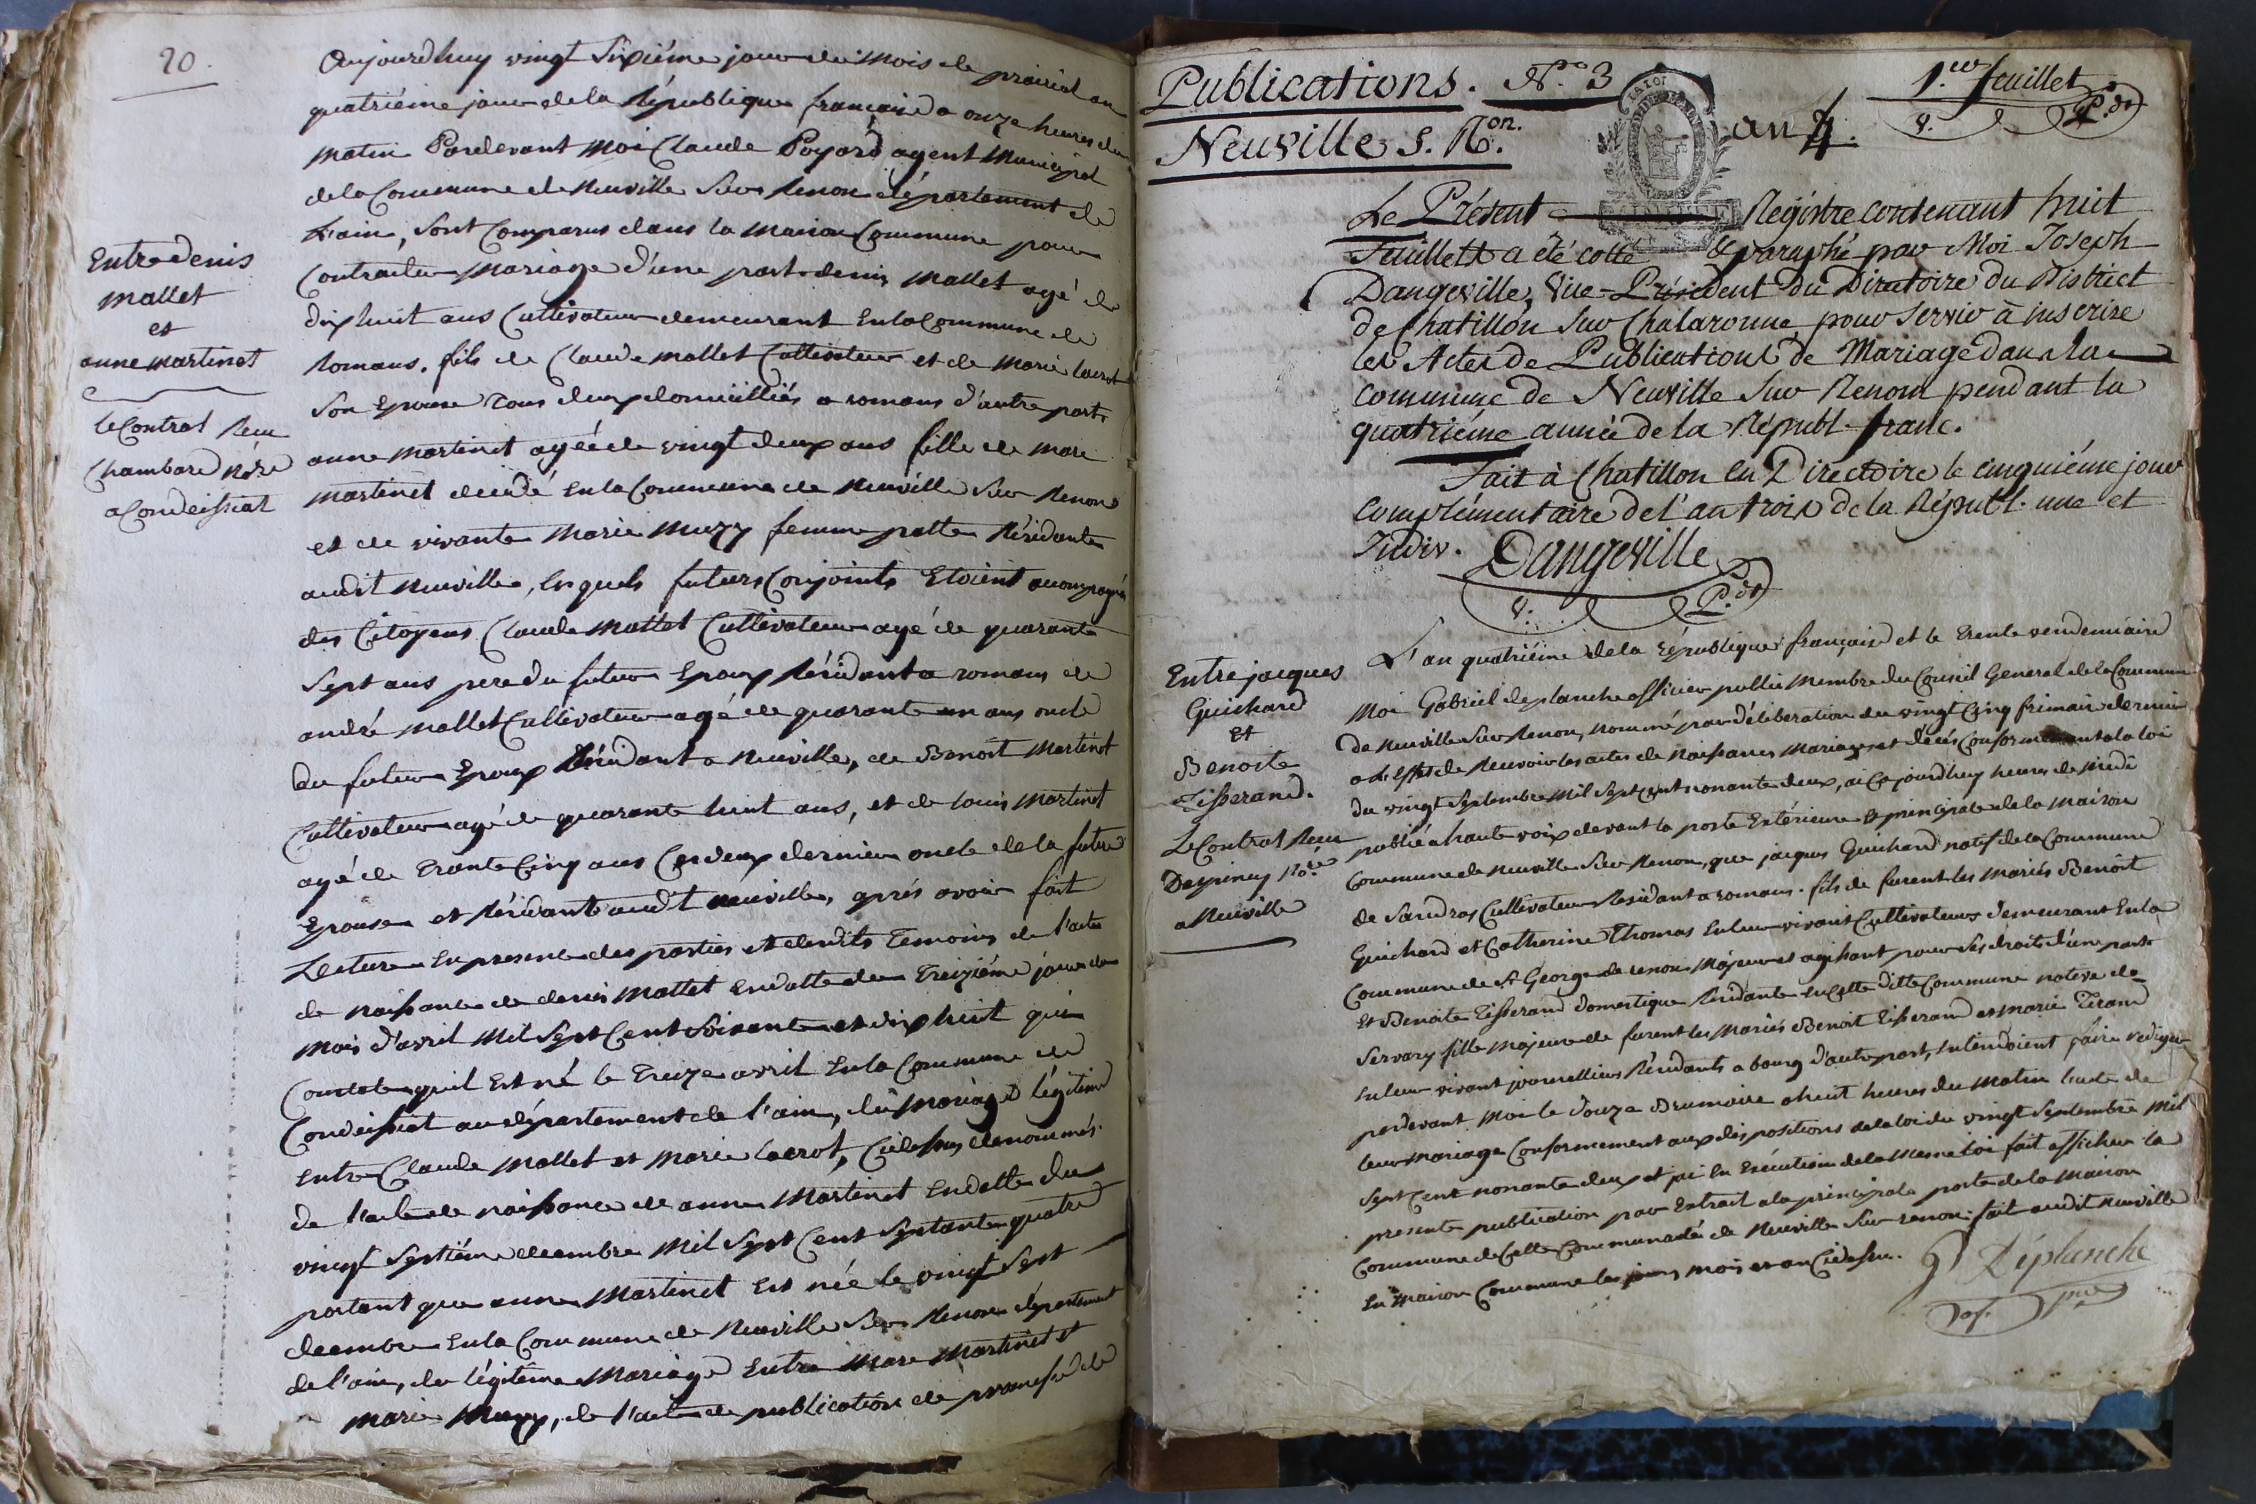 20.
Entre denis
mallet
et
anne martinet
le Contrat Recu
Chambard Nore
a Condeissiat
aujourdhuy vingt Sixiéme jour du mois de prairial an
quatriéme jour de la République francaise a onze heures du
matin Pardevant moi Claude Poyard agent Municipal
de la Commune de Neuville Sur Renon département de
L'ain, Sont Comparus dans la maison Commune pour
Contracter mariage d'une part denis mallet agé de
dixhuit ans Cultivateur demeurant en la Commune de
Romans. fils de Claude mallet Cultivateur et de marie lacrot
Son Epouse tous deux domicilliés a romans d'autre part
anne martinet agée de vingt deux ans fille de marc
martinet decedé en la Commune de Neuville Sur Renon
et de vivante marie muzy femme patte Résidante
audit Neuville, lesquels futurs Conjoints Etoient accompagnés
des Citoyens Claude mallet Cultivateur agé de quarante
Sept ans pere du futur Epoux Résidant a romans de
andré mallet Cultivateur agé de quarante un ans oncle
du futur Epoux Résidant a Neuville, de Benoit martinet
Cultivateur agé de quarante huit ans, et de louis martinet
agé de trante Cinq ans Ces deux derniers oncle de la future
Epouse et Résidants audit neuville, aprés avoir fait
Lecture en presence des parties et desdits temoins de l'acte
de naissance de denis mallet en datte du treiziéme jour du
mois d'avril mil Sept Cent Soixante et dixhuit qui
Constate quil Est né le treize avril en la Commune de
Condeissiat au département de l'ain, du mariage légitime
entre Claude mallet et marie lacrot, Cidessus denommés.
de l'acte de naissance de anne martinet en datte du
vingt Septiéme decembre mil Sept Cent Septante quatre
portant que anne martinet Est née le vingt Sept
decembre en la Commune de Neuville Sur Renon département
de l'ain, du légitime mariage Entre marc martinet et
marie muzy, de l'acte de publication de promesse de
Publications. N.o 3
an 4.
1.er feuillet
V. P.dt
Neuville S. Ron.
Le Présent Registre contenant huit
Feuillets a été cotté & paraphé par Moi Joseph
Dangeville, Vice-Président du Directoire du District
de Chatillon Sur Chalaronne pour Servir à inscrire
les Actes de Publications de Mariage dans la
commune de Neuville Sur Renom pendant la
quatriéme année de la Républ. franc.
Fait à Chatillon en Directoire le cinquiéme jour
complémentaire de l'an trois de la Républ. une et
Indiv. Dangeville
V. P.dt
Entre jacques
Guichard
Et
Benoite
Tisserand.
Le Contrat Recu
Despiney No.re
a Neuville
L'an quatriéme de la République française et le trente vendemiaire
Moi Gabriel deplanche officier public Membre du Conseil General de la Commune
de Neuville Sur Renon, nommé par déliberation du vingt Cinq frimaire dernier
a L'effet de Recevoir les actes de Naissances Mariages et décés Conformement a la loi
du vingt Septembre mil Sept Cent nonante deux, ai Cejourdhuy heures de midi
publié a haute voix devant la porte Extérieure & principale de la maison
Commune de Neuville Sur Renon, que jacques Guichard natif de la Commune
de Sandras Cultivateur Résidant a romans. fils de furent les mariés Benoit
Guichard et Catherine Thomas en leur vivant Cultivateurs demeurant En la
Commune de St George de renon Majeur et agissant pour Ses droits d'une part
Et Benoite Tisserand domestique Résidante en Cette ditte Commune native de
Servas fille majeure de furent les mariés Benoit Tisserand et marie Tirand
en leur vivant journalliers Résidants a bourg d'autre part, intendoient faire rediger
pardevant moi le douze Brumaire a huit heures du matin l'acte de
leur mariage Conformement aux dispositions de la loi du vingt Septembre mil
Sept Cent nonante deux et jai En Exécution de la Meme loi fait afficher la
presente publication par Extrait a la principale porte de la maison
Commune de Cette Communauté de Neuville Sur renon fait audit Neuville
En maison Commune les jours mois et an Cidessus.
g Déplanche
of. pu.